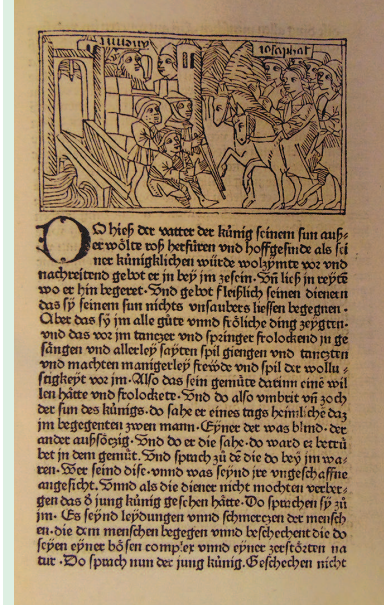 iosaphat
DO hieß der vatter der künig seinem sun auß⸗
er wölte roß herfüren vnd hoffgesinde als sei
ner künigklichen würde wolzymte vor vnd
nachreitend gebot er in bey jm zesein. Vn̄ ließ in reytē
wo er hin begeret. Vnd gebot fleißlich seinen dienern
das sÿ seinem sun nichts vnsaubers liessen begegnen.
Aber das sÿ jm alle güte vnnd fröliche ding zeygten.
vnd das vor jm tanczer vnd springer frolockend in ge
sängen vnd allerley sayten spil giengen vnd tanczten
vnd machten manigerley frewde vnd spil der wollu⸗
stigkeyt vor jm. Also das sein gemüte darinn eine wil
len hätte vnd frolockete. Vnd do also vmbrit vn̄ zoch
der sun des künigs. do sahe er eines tags heimliche daz
jm begegenten zwen mann. Eyner der was blind. der
ander außsöczig. Vnd do er die sahe. do ward er betrü
bet in dem gemüt. Vnd sprach zů dē die do bey jm wa⸗
ren. Wer seind dise. vnnd was seynd jre vngeschaffne
angesicht. Vnnd als die diener nicht mochten verber⸗
gen das d̄ jung künig gesehen hätte. Do sprachen sÿ zů
jm. Es seynd leydungen vnnd schmerczen der mensch
en. die dem menschen begegen vnnd beschechent die do
seyen eyner bösen complex vnnd eyner zerstörten na
tur. Do sprach nun der jung künig. Geschechen nicht